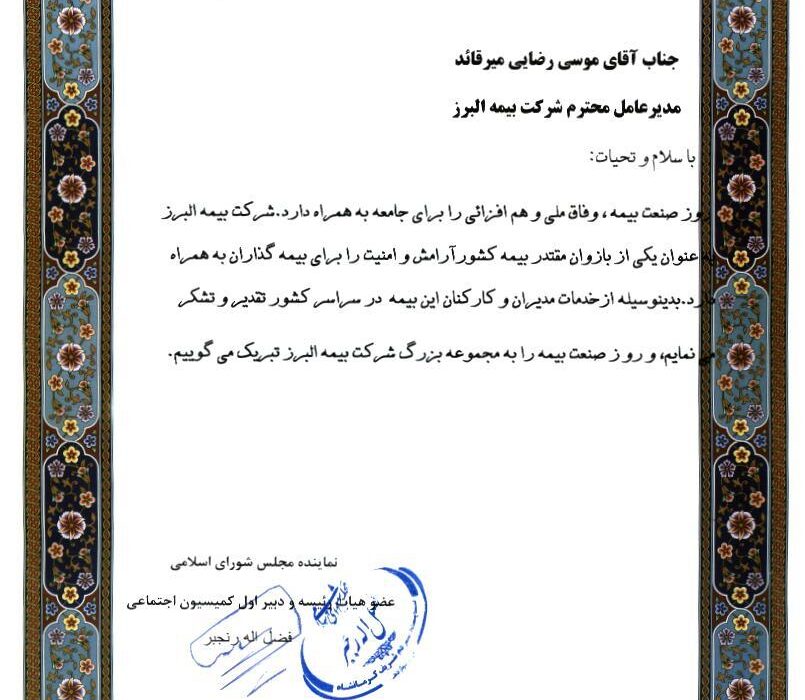 جناب آقای موسی رضایی میرقائد
مدیرعامل محترم شرکت بیمه البرز
با سلام و تحیات:
روز صنعت بیمه، وفاق ملی و هم افزائی را برای جامعه به همراه دارد.شرکت بیمه البرز
به عنوان یکی از بازوان مقتدر بیمه کشور آرامش و امنیت را برای بیمه گذاران به همراه
دارد.بدینوسیله از خدمات مدیران و کارکنان این بیمه در سراسر کشور تقدیر و تشکر
می نمایم، و روز صنعت بیمه را به مجموعه بزرگ شرکت بیمه البرز تبریک می گوییم.
نماینده مجلس شورای اسلامی
عضو هیات رئیسه و دبیر اول کمیسیون اجتماعی
فضل اله رنجبر